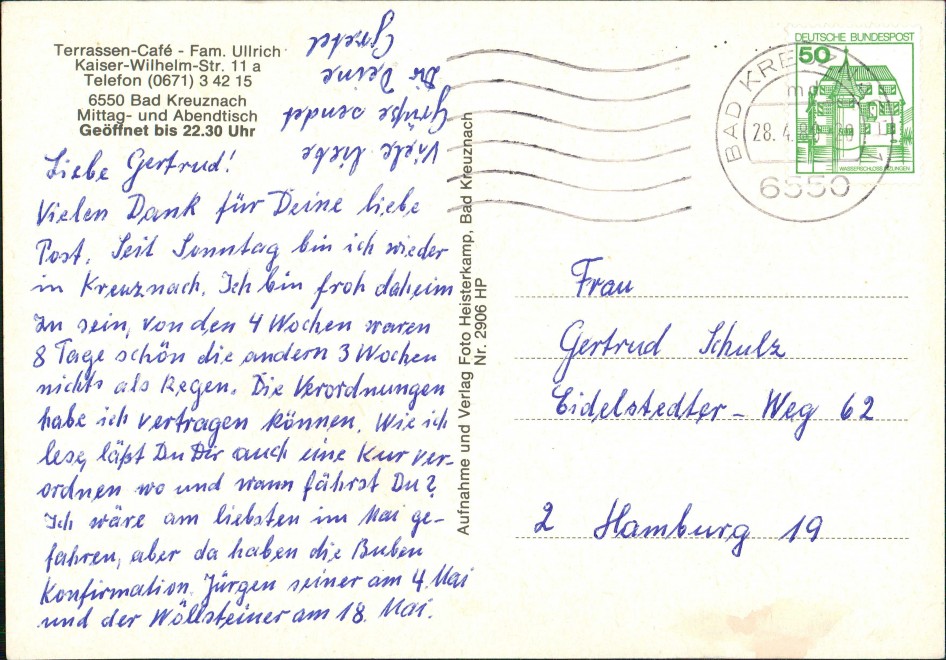 Terrassen-Café - Fam. Ullrich
Kaiser-Wilhelm-Str. 11 a
Telefon (0671) 3 42 15
6550 Bad Kreuznach
Mittag- und Abendtisch
Geöffnet bis 22.30 Uhr
Liebe Gertrud!
Vielen Dank für Deine liebe
Post. Seit Sonntag bin ich wieder
in Kreuznach. Ich bin froh daheim
zu sein, von den 4 Wochen waren
8 Tage schön die andern 3 Wochen
nichts als Regen. Die Verordnungen
habe ich vertragen können. Wie ich
lese, läßt Du Dir auch eine Kur ver-
ordnen wo und wann fährst Du?
Ich wäre am liebsten im Mai ge-
fahren, aber da haben die Buben
Konfirmation. Jürgen seiner am 4. Mai
und der Wöllsteiner am 18. Mai.
Viele liebe
Grüße sendet
Dir Deine
Gretel
Aufnahme und Verlag Foto Heisterkamp, Bad Kreuznach
Nr. 2906 HP
DEUTSCHE BUNDESPOST
50
WASSERSCHLOSS
BAD KREUZ
28. 4.
6550
Frau
Gertrud Schulz
Eidelstedter-Weg 62
2 Hamburg 19